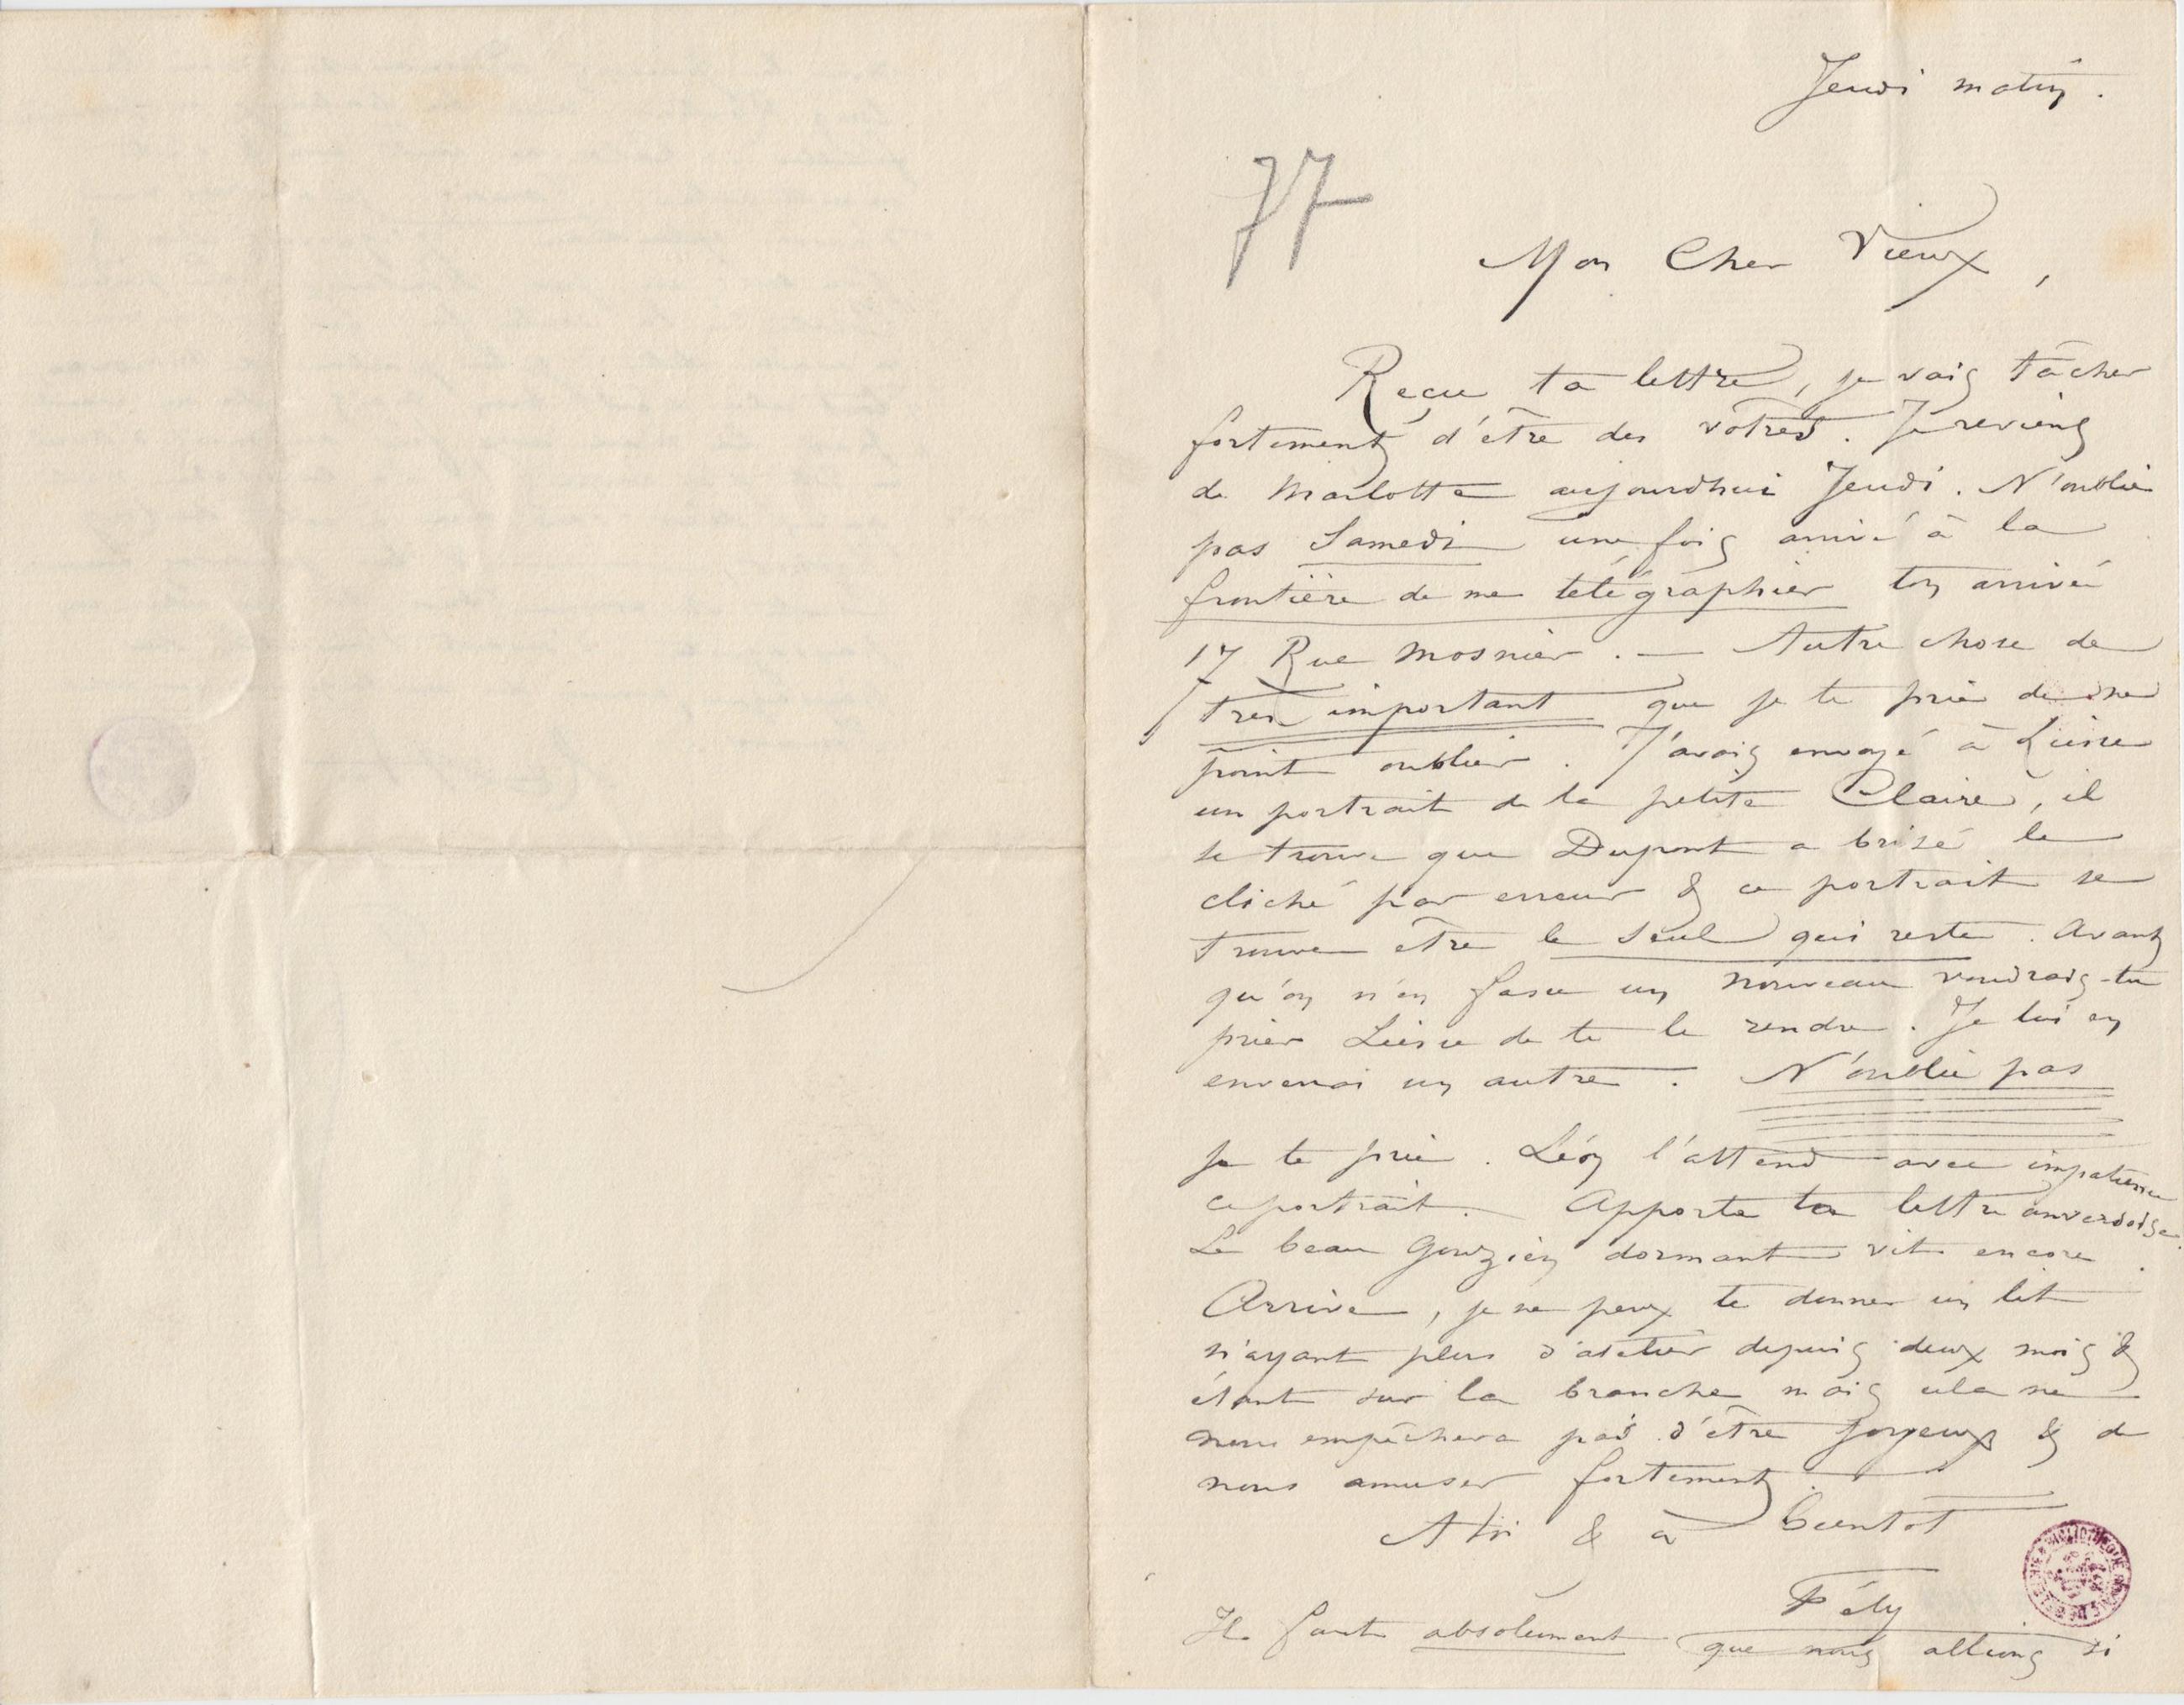 Jeudi matin.
77
Mon Cher Vieux,
Reçu ta lettre, je vais tâcher
fortement d'être des vôtres. Je reviens
de Marlotte aujourdhui Jeudi. N'oublie
pas Samedi une fois arrivé à la
frontière de me télégraphier ton arrivée
17 Rue Mosnier. — Autre chose de
très important que je te prie de ne
point oublier. J'avais envoyé à Liesse
un portrait de la petite Claire, il
se trouve que Dupont a brisé le
cliché par erreur & ce portrait se
trouve être le seul qui reste. Avant
qu'on n'en fasse un nouveau voudrais-tu
prier Liesse de te le rendre. Je lui en
enverrai un autre. N'oublie pas
je te prie. Léon l'attend avec impatience
ce portrait. Apporte ta lettre anversoise.
Le beau Gouzien dormant vit encore.
Arrive, je ne peux te donner un lit
n'ayant plus d'atelier depuis deux mois &
étant sur la branche mais cela ne
nous empêchera pas d'être joyeux & de
nous amuser fortement.
A toi & à bientot
Fély
Il faut absolument que nous allions si